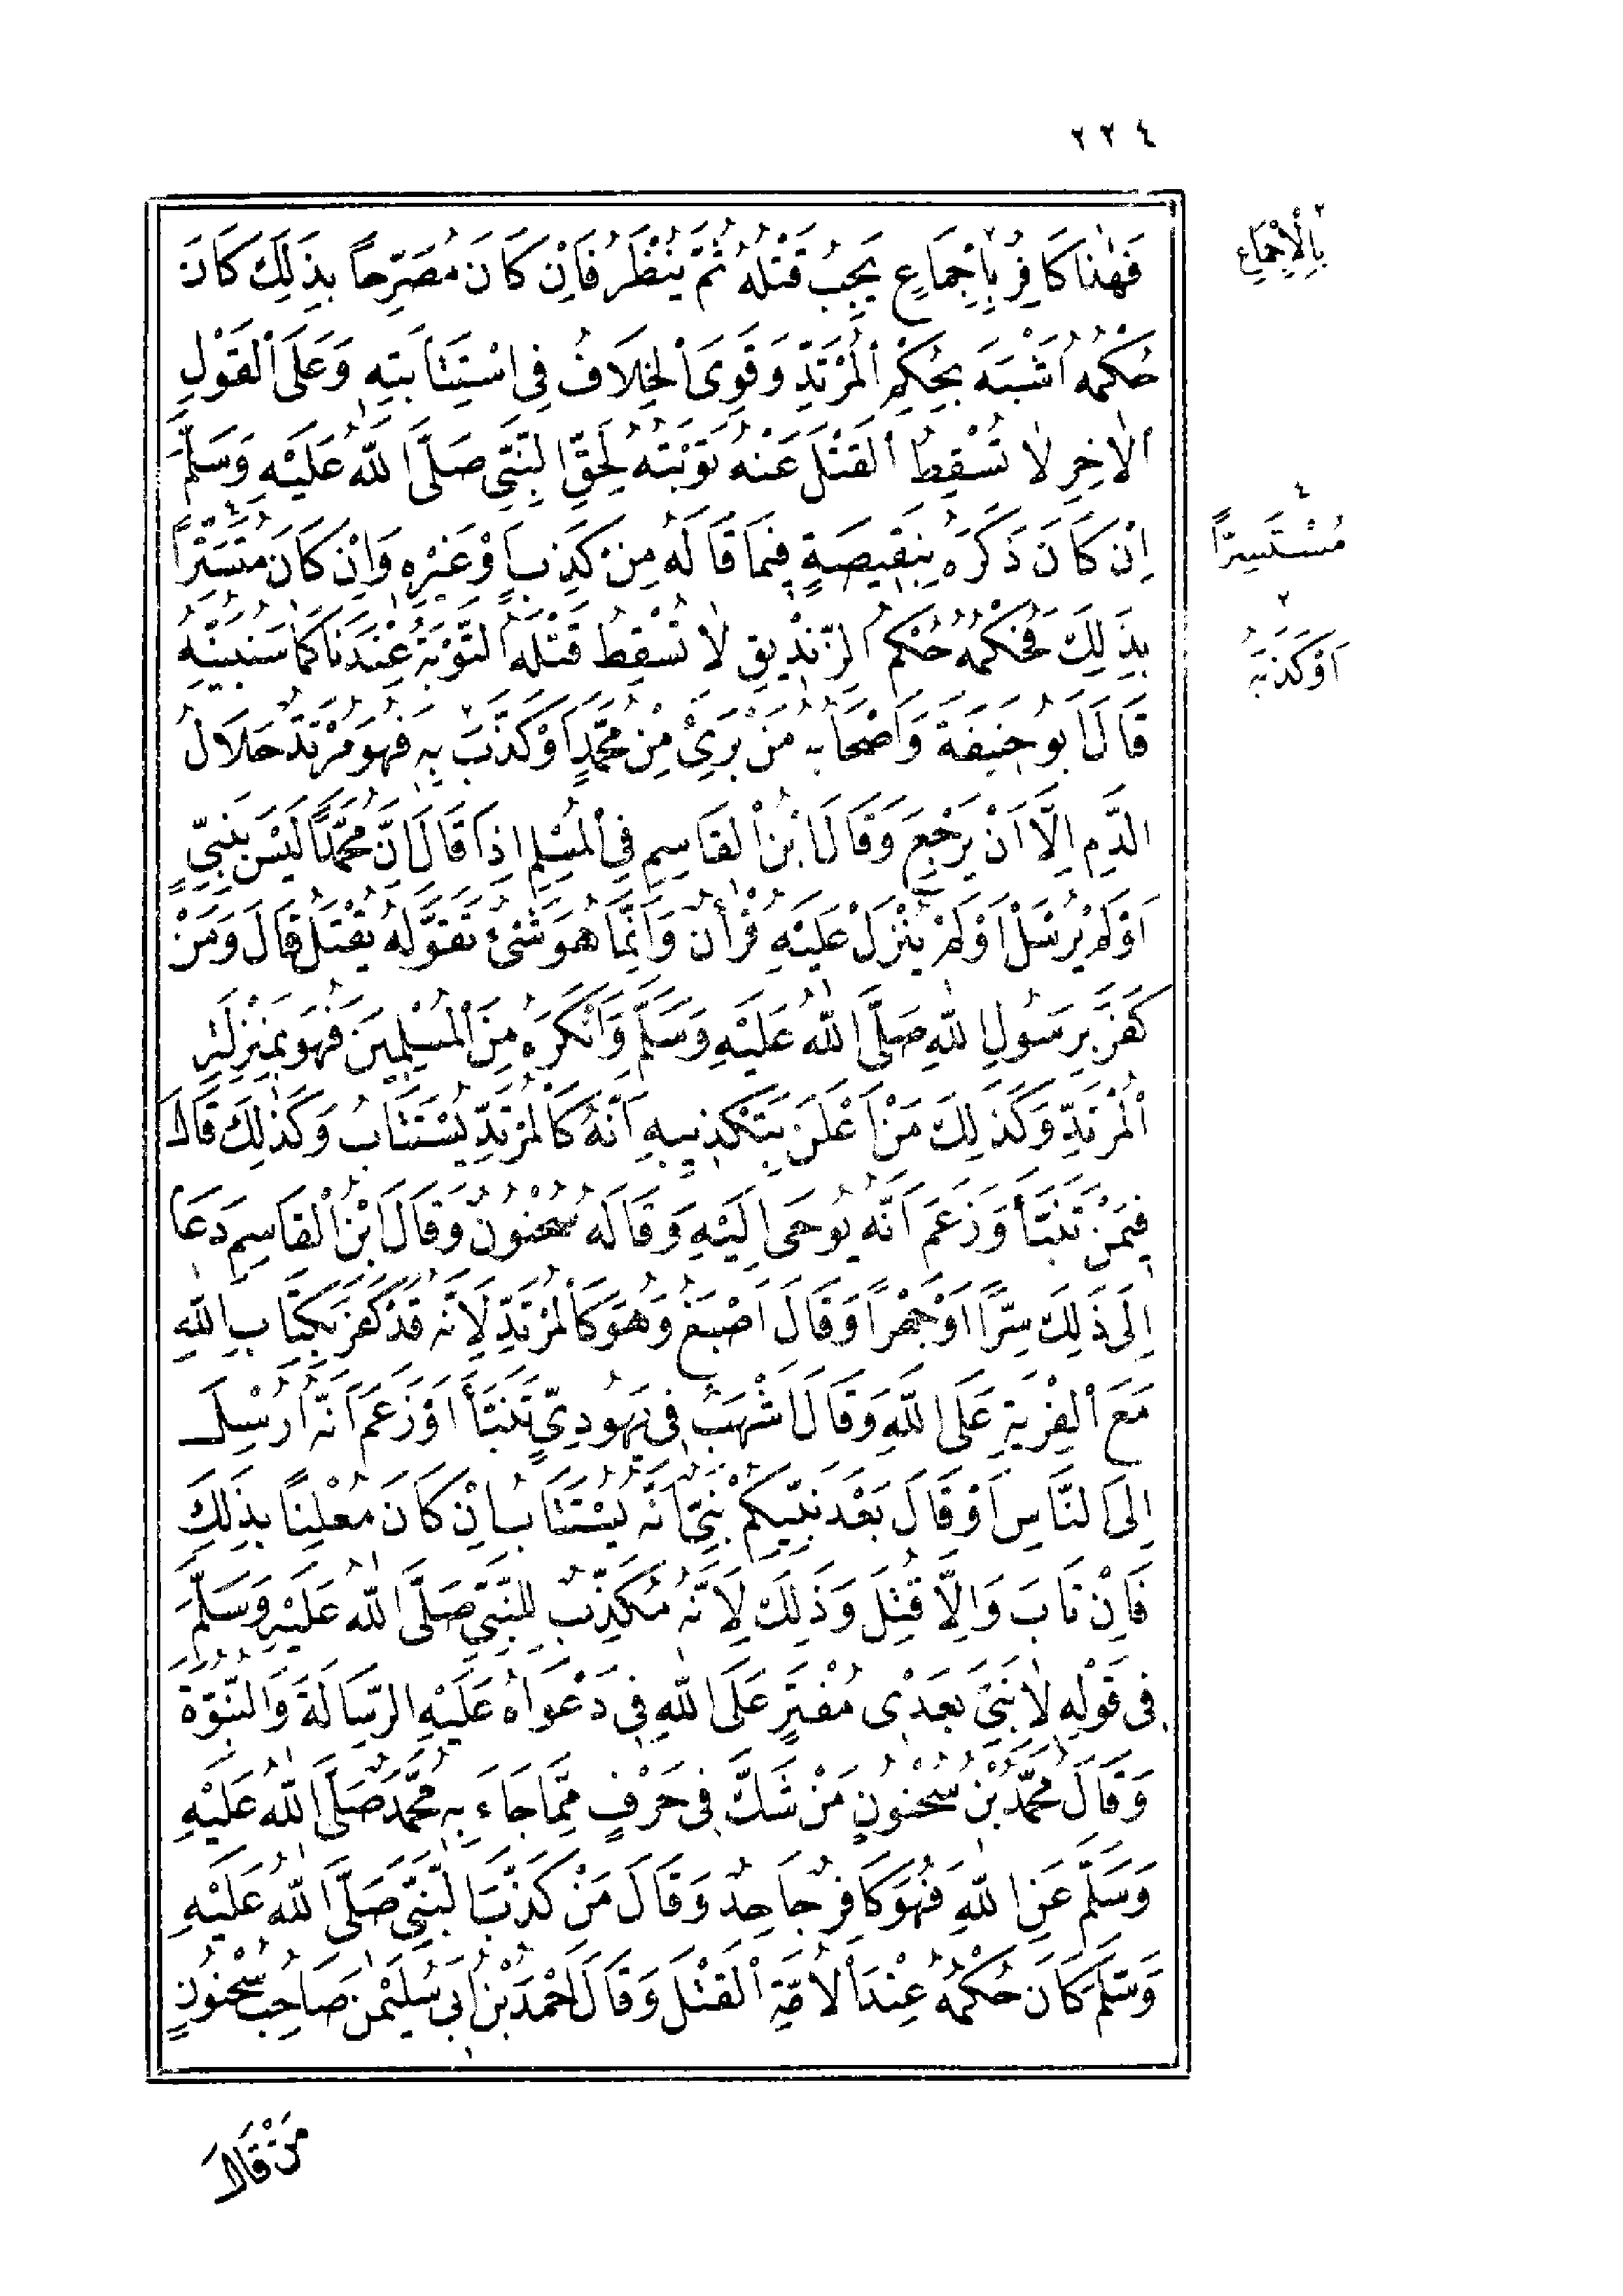 ٢٢٤
فَهٰذَا كَافِرٌ بِإِجْمَاعٍ يَجِبُ قَتْلُهُ ثُمَّ يُنْظَرُ فَاِنْ كَانَ مُصَرِّحاً بِذَلِكَ كَانَ
حُكْمُهُ اَشْبَهَ بِحُكْمِ الْمُرْتَدِّ وَقَوِىَ الْخِلَافُ فِى اسْتِتَابَتِهِ وَعَلَى الْقَوْلِ
الْاٰخِرِ لَا تُسْقِطُ الْقَتْلَ عَنْهُ تَوْبَتُهُ لِحَقِّ النَّبِىِّ صَلَّى اللهُ عَلَيْهِ وَسَلَّمَ
اِنْ كَانَ ذَكَرَهُ بِنَقِيصَةٍ فِيمَا قَالَهُ مِنْ كَذِبٍ اَوْ غَيْرِهِ وَاِنْ كَانَ مُتَسَتِّرًا
بِذَلِكَ فَحُكْمُهُ حُكْمُ الزِّنْدِيقِ لَا تُسْقِطُ قَتْلَهُ التَّوْبَةُ عِنْدَنَا كَمَا سَنُبَيِّنُهُ
قَالَ اَبُو حَنِيفَةَ وَاَصْحَابُهُ مَنْ بَرِئَ مِنْ مُحَمَّدٍ اَوْ كَذَّبَ بِهِ فَهُوَ مُرْتَدٌّ حَلَالُ
الدَّمِ اِلَّا اَنْ يَرْجِعَ وَقَالَ ابْنُ الْقَاسِمِ فِى الْمُسْلِمِ اِذَا قَالَ اِنَّ مُحَمَّدًا لَيْسَ بِنَبِىٍّ
اَوْ لَمْ يُرْسَلْ اَوْ لَمْ يُنْزَلْ عَلَيْهِ قُرْاٰنٌ وَاِنَّمَا هُوَ شَىْءٌ تَقَوَّلَهُ يُقْتَلُ قَالَ وَمَنْ
كَفَرَ بِرَسُولِ اللهِ صَلَّى اللهُ عَلَيْهِ وَسَلَّمَ وَاَنْكَرَهُ مِنَ الْمُسْلِمِينَ فَهُوَ بِمَنْزِلَةِ
الْمُرْتَدِّ وَكَذَلِكَ مَنْ اَعْلَنَ بِتَكْذِيبِهِ اَنَّهُ كَالْمُرْتَدِّ يُسْتَتَابُ وَكَذَلِكَ قَالَ
فِيمَنْ تَنَبَّأَ وَزَعَمَ اَنَّهُ يُوحَى اِلَيْهِ وَقَالَهُ سُحْنُونٌ وَقَالَ ابْنُ الْقَاسِمِ دَعَا
اِلَى ذَلِكَ سِرًّا اَوْ جَهْراً وَقَالَ اَصْبَغُ وَهُوَ كَالْمُرْتَدِّ لِاَنَّهُ قَدْ كَفَرَ بِكِتَابِ اللهِ
مَعَ الْفِرْيَةِ عَلَى اللهِ وَقَالَ اَشْهَبُ فِى يَهُودِىٍّ تَنَبَّأَ اَوْ زَعَمَ اَنَّهُ اُرْسِلَ
اِلَى النَّاسِ اَوْ قَالَ بَعْدَ نَبِيِّكُمْ نَبِىٌّ اَنَّهُ يُسْتَتَابُ اِنْ كَانَ مُعْلِنًا بِذَلِكَ
فَاِنْ تَابَ وَاِلَّا قُتِلَ وَذَلِكَ لِاَنَّهُ مُكَذِّبٌ لِلنَّبِىِّ صَلَّى اللهُ عَلَيْهِ وَسَلَّمَ
فِى قَوْلِهِ لَا نَبِىَّ بَعْدِى مُفْتَرٍ عَلَى اللهِ فِى دَعْوَاهُ عَلَيْهِ الرِّسَالَةَ وَالنُّبُوَّةَ
وَقَالَ مُحَمَّدُ بْنُ سُحْنُونٍ مَنْ شَكَّ فِى حَرْفٍ مِمَّا جَاءَ بِهِ مُحَمَّدٌ صَلَّى اللهُ عَلَيْهِ
وَسَلَّمَ عَنِ اللهِ فَهُوَ كَافِرٌ جَاحِدٌ وَقَالَ مَنْ كَذَّبَ النَّبِىَّ صَلَّى اللهُ عَلَيْهِ
وَسَلَّمَ كَانَ حُكْمُهُ عِنْدَ الْاُمَّةِ الْقَتْلَ وَقَالَ اَحْمَدُ بْنُ اَبِى سُلَيْمٰنَ صَاحِبُ سُحْنُونٍ
مَنْ قَالَ
٢
بِالْاِجْمَاعِ
٤
مُسْتَسِرًّا
٢
اَوْ كَذَّبَهُ